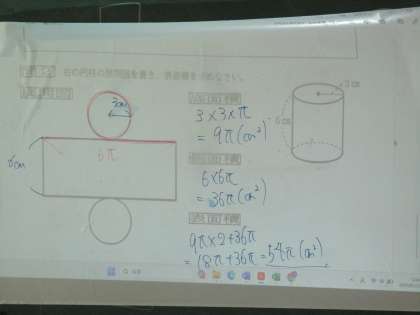 右の円柱の展開図を書き、表面積を求めなさい。
3cm
3cm
6cm
6π
6cm
底面積
3×3×π
=9π(cm²)
側面積
6×6π
=36π(cm²)
表面積
9π×2+36π
=18π+36π=54π(cm²)